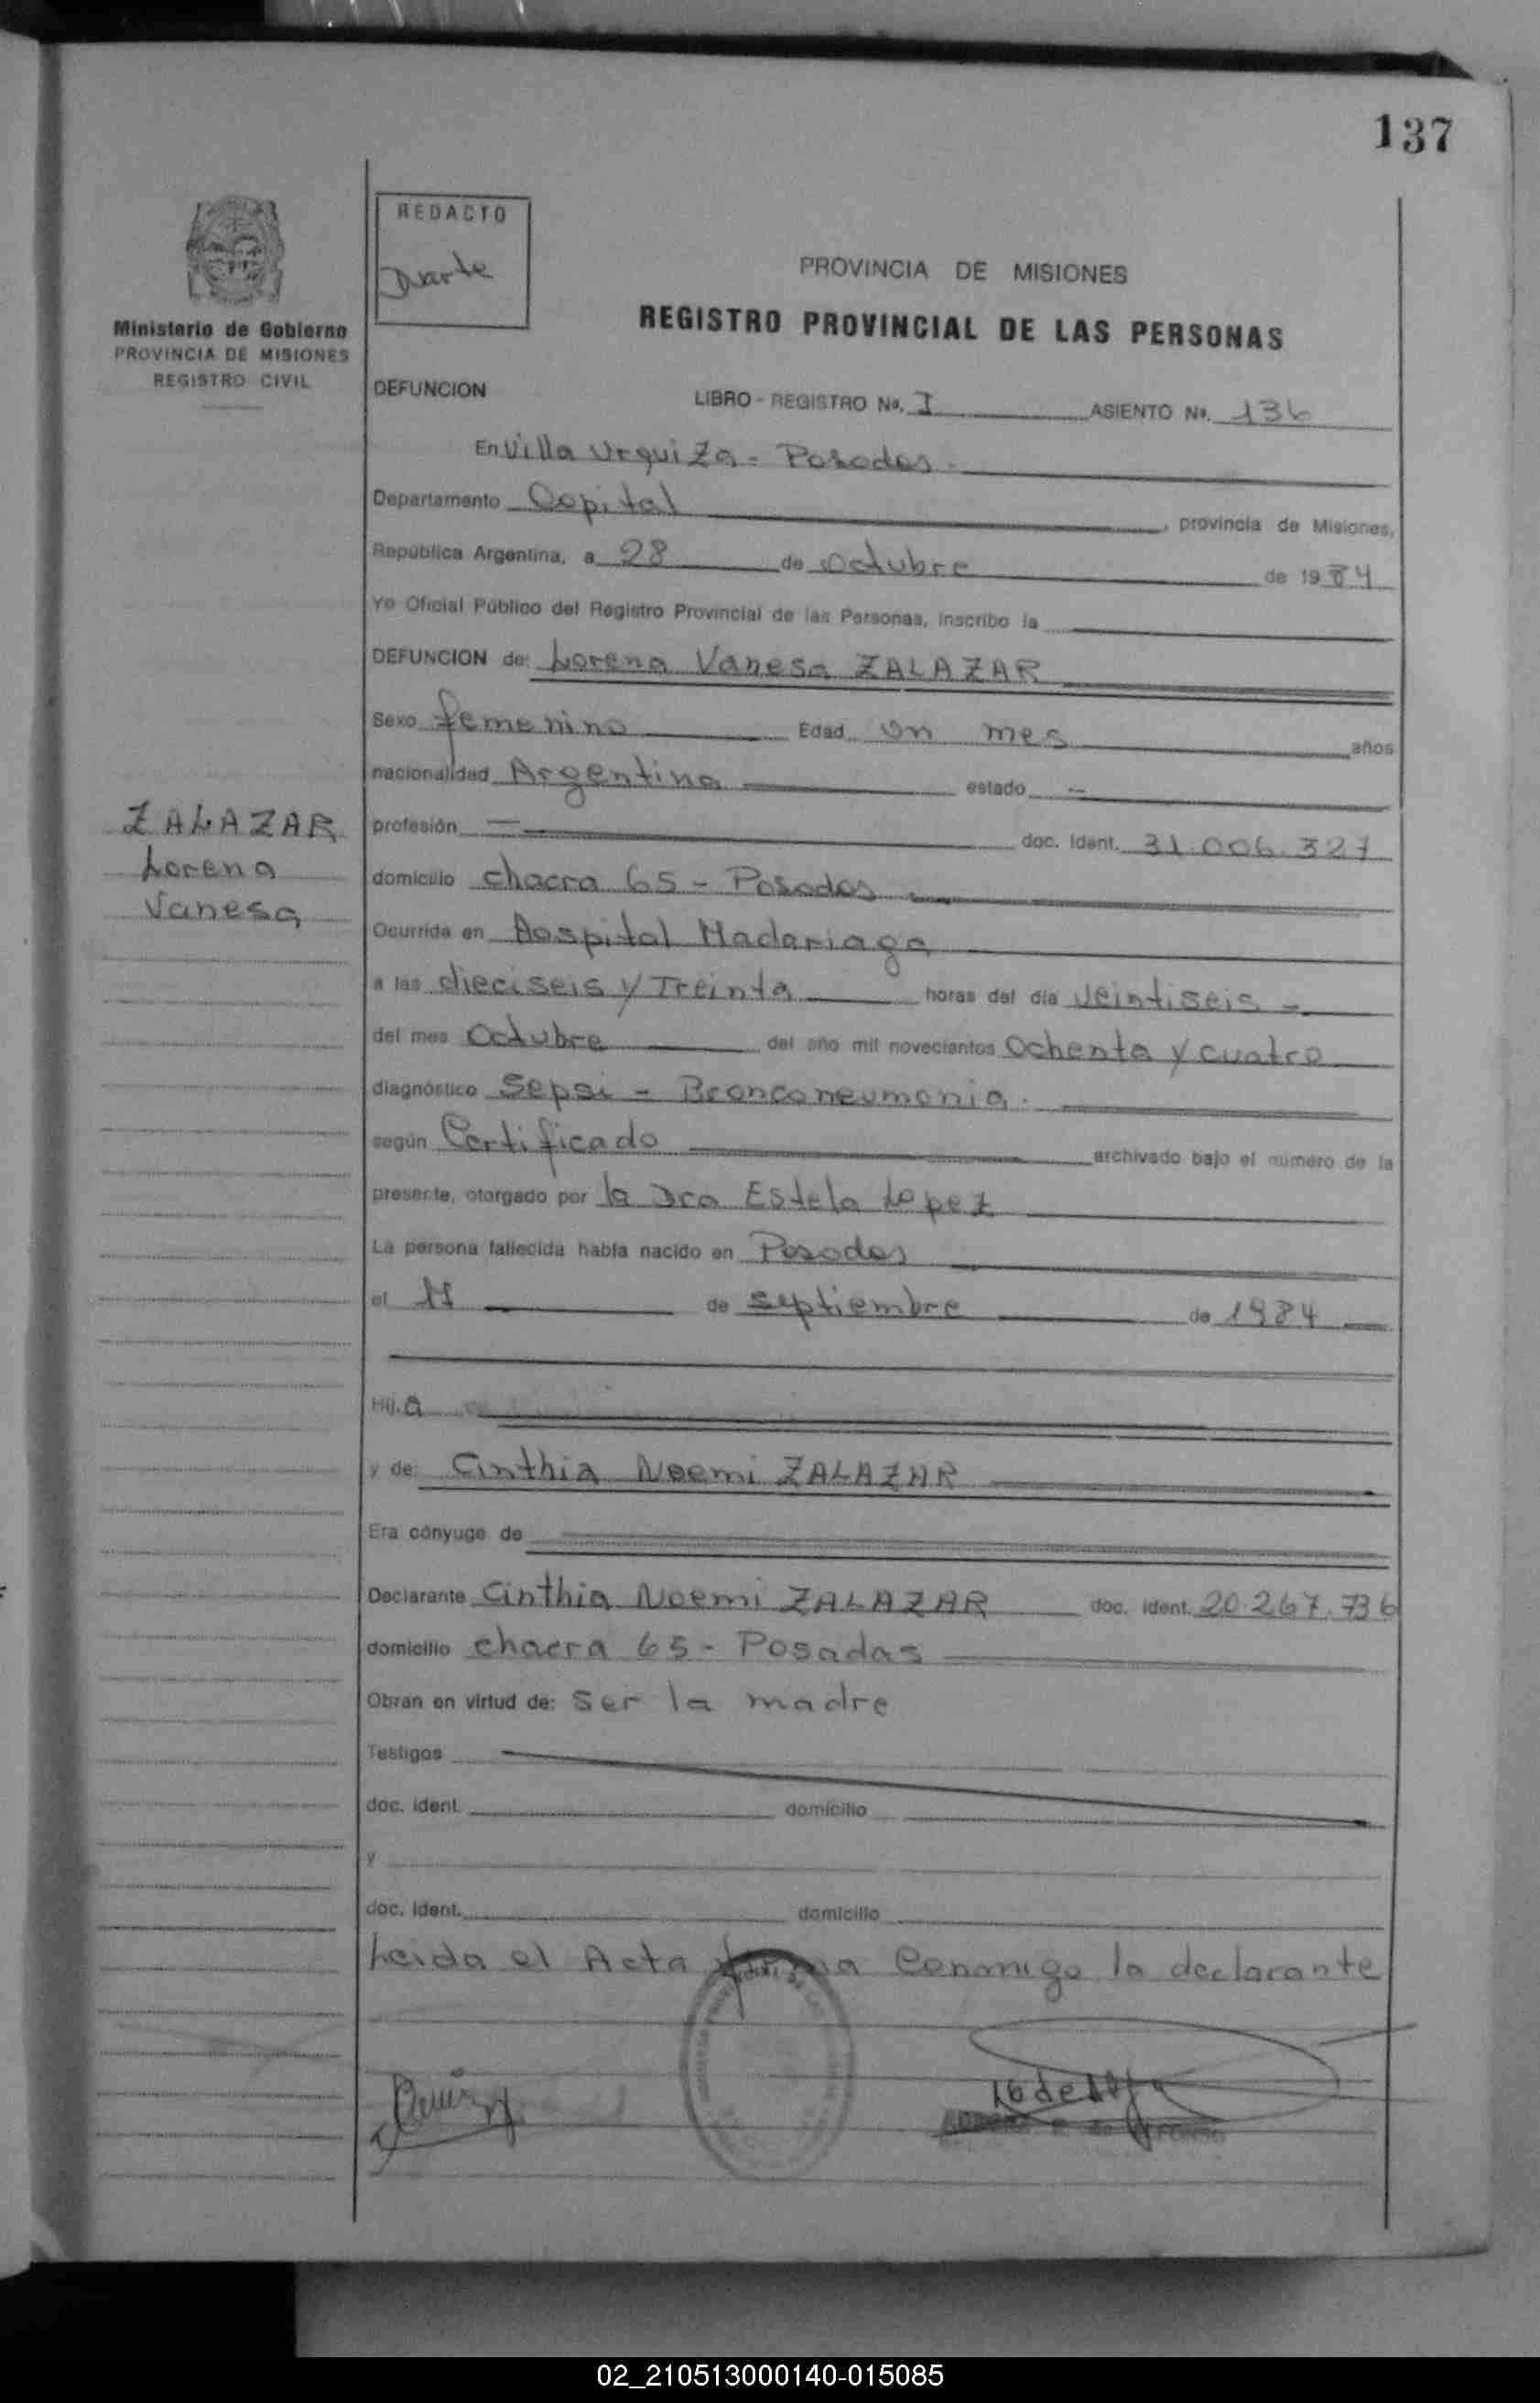 137
REDACTO
Duarte
Ministerio de Gobierno
PROVINCIA DE MISIONES
REGISTRO CIVIL
PROVINCIA DE MISIONES
REGISTRO PROVINCIAL DE LAS PERSONAS
DEFUNCION LIBRO - REGISTRO No. I ASIENTO No. 136
En Villa Urquiza - Posadas -
Departamento Capital, provincia de Misiones,
República Argentina, a 28 de octubre de 1984
Yo Oficial Público del Registro Provincial de las Personas, inscribo la
DEFUNCION de: Lorena Vanesa ZALAZAR
Sexo femenino Edad un mes años
nacionalidad Argentina estado -
ZALAZAR
Lorena
Vanesa
profesión — doc. ident. 31.006.327
domicilio chacra 65 - Posadas
Ocurrida en Hospital Madariaga
a las dieciseis y Treinta horas del día veintiseis -
del mes Octubre del año mil novecientos ochenta y cuatro
diagnóstico Sepsi - Bronconeumonia.
según Certificado archivado bajo el número de la
presente, otorgado por la Dra Estela Lopez
La persona fallecida había nacido en Posadas
el de septiembre de 1984
Hij.a
y de: Cinthia Noemi ZALAZAR
Era cónyuge de
Declarante Cinthia Noemi ZALAZAR doc. ident. 20.267.736
domicilio chacra 65 - Posadas
Obran en virtud de: Ser la madre
Testigos
doc. ident. domicilio
y
doc. ident. domicilio
Leida el Acta firma Conmigo la declarante
02_210513000140-015085